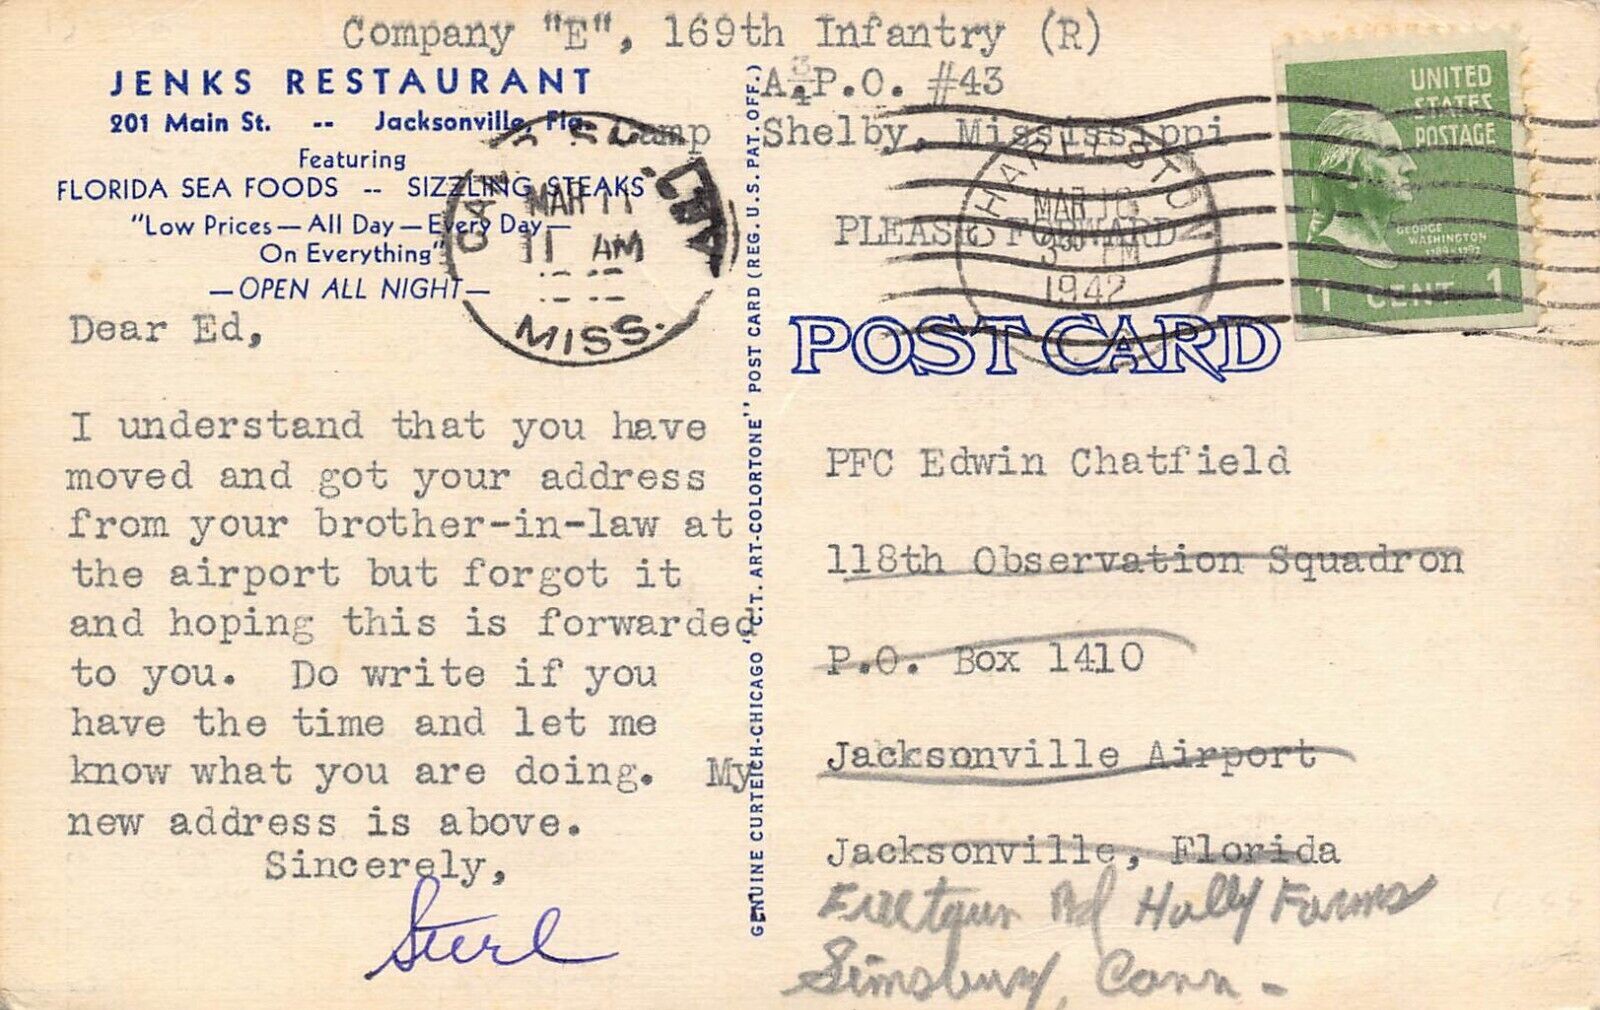 Company "E", 169th Infantry (R)
A.P.O. #43
3/4
Camp Shelby, Mississippi
PLEASE FORWARD
JENKS RESTAURANT
201 Main St. -- Jacksonville, Fla.
Featuring
FLORIDA SEA FOODS -- SIZZLING STEAKS
"Low Prices—All Day—Every Day—
On Everything"
—OPEN ALL NIGHT—
MAR 11
11 AM
MISS.
CHARLESTON
MAR 16
PM
1942
UNITED
STATES
POSTAGE
GEORGE
WASHINGTON
1789-1797
1 CENT 1
Dear Ed,
I understand that you have
moved and got your address
from your brother-in-law at
the airport but forgot it
and hoping this is forwarded
to you. Do write if you
have the time and let me
know what you are doing. My
new address is above.
Sincerely,
GENUINE CURTEICH-CHICAGO "C.T. ART-COLORTONE" POST CARD (REG. U.S. PAT. OFF.)
POST CARD
PFC Edwin Chatfield
118th Observation Squadron
P.O. Box 1410
Jacksonville Airport
Jacksonville, Florida
Rd Holly Farms
Simsbury, Conn.